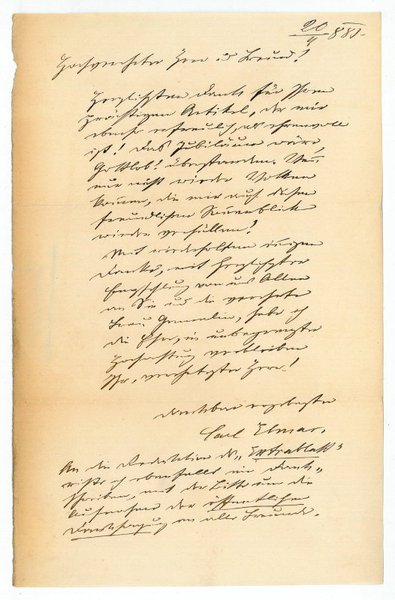 20/4 881.
Hochverehrter Herr und Freund!
Herzlichsten Dank für Ihren
Artikel, der mir
ebenso erfreulich, als ehrenvoll
ist! Das Jubiläum wäre,
Gottlob! überstanden. Wenn
nur nicht wieder Wolken
kommen, die mir auf diesen
freundlichen Sonnenblick
wieder verhüllen!
Mit wiederholtem innigen
Danke, mit herzlichster
Empfehlung von uns Allen
an Sie und die verehrte
Frau Gemahlin, habe ich
die Ehre, in unbegrenzter
Hochachtung verbleiben
Ihr, verehrtester Herr!
dankbar ergebenster
Carl Elmar.
An die Redaktion des "Extrablatt"
richte ich ebenfalls ein Dank-
schreiben, mit der Bitte um die
Aufnahme der öffentlichen
Danksagung an alle Freunde.